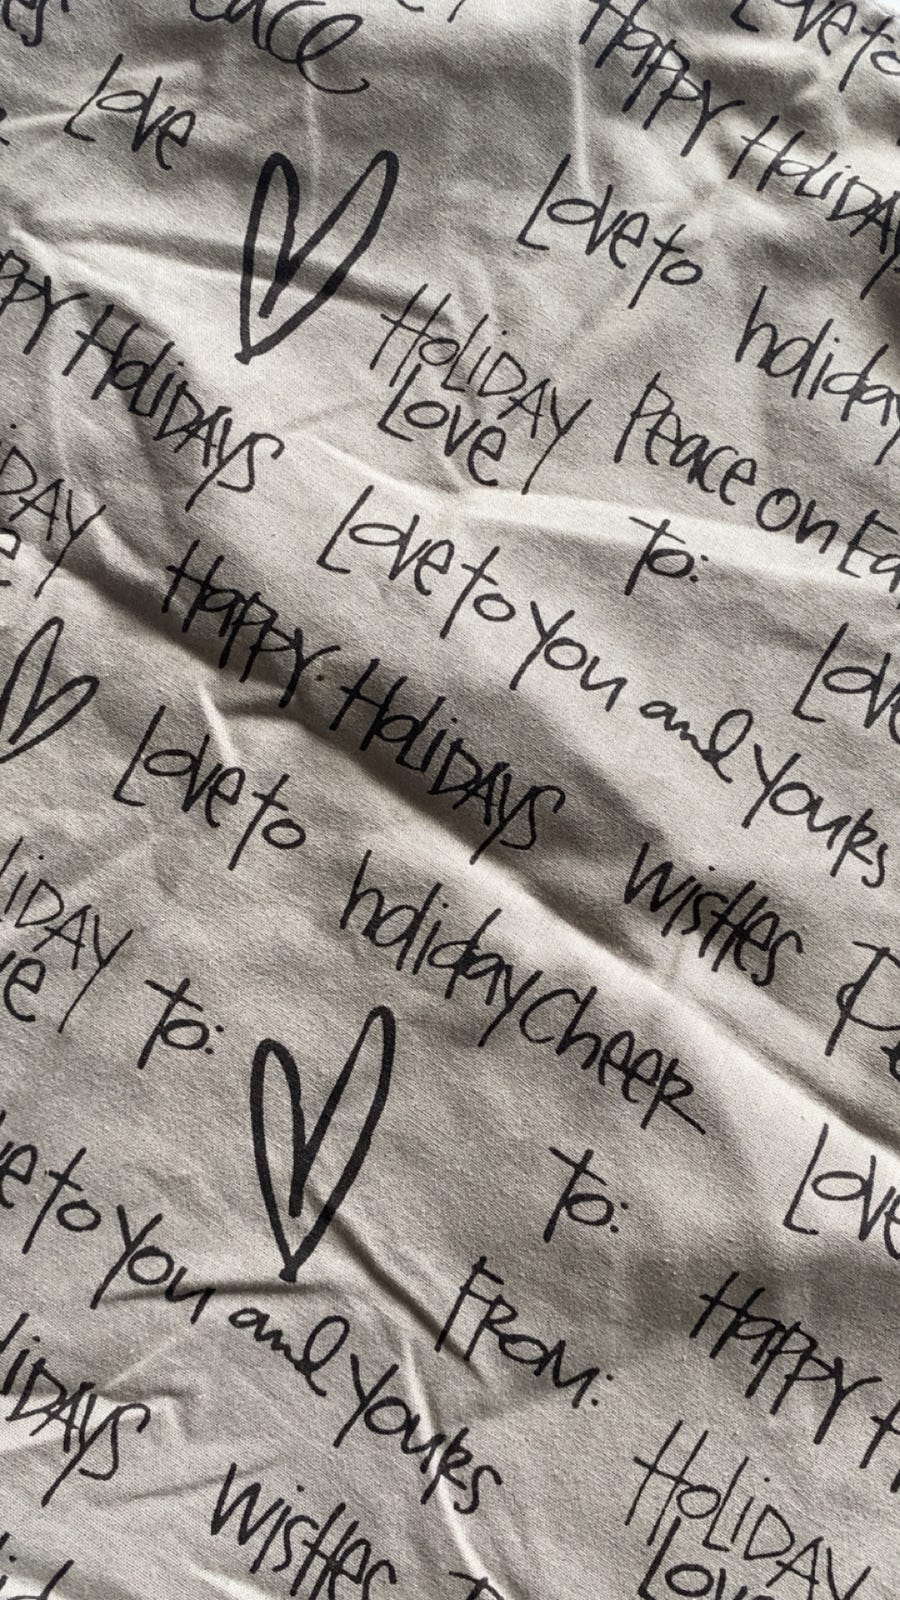 Love to
Happy Holidays
Love
Love to
holiday
Happy Holidays
Holiday
Love
Peace on
To:
Love to you and yours
Love
Happy Holidays
wishes
Love to
holiday cheer
To:
To:
Love
From:
Happy
to you and yours
wishes
Holiday
Love